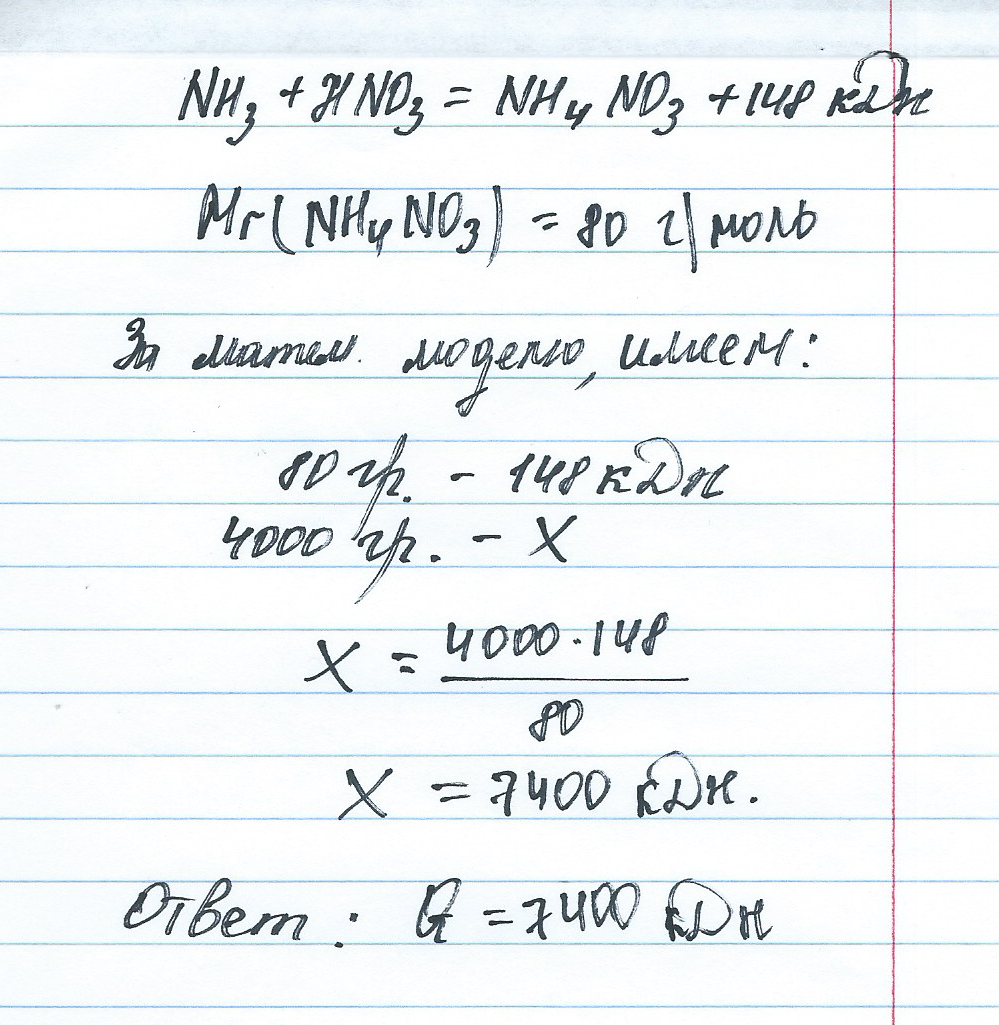 NH₃ + HNO₃ = NH₄NO₃ + 148 кДж
Mr(NH₄NO₃) = 80 г/моль
За матем. моделю, имеем:
80 гр. - 148 кДж
4000 гр. - X
X = 4000 · 148 / 80
X = 7400 кДж.
Ответ: Q = 7400 кДж